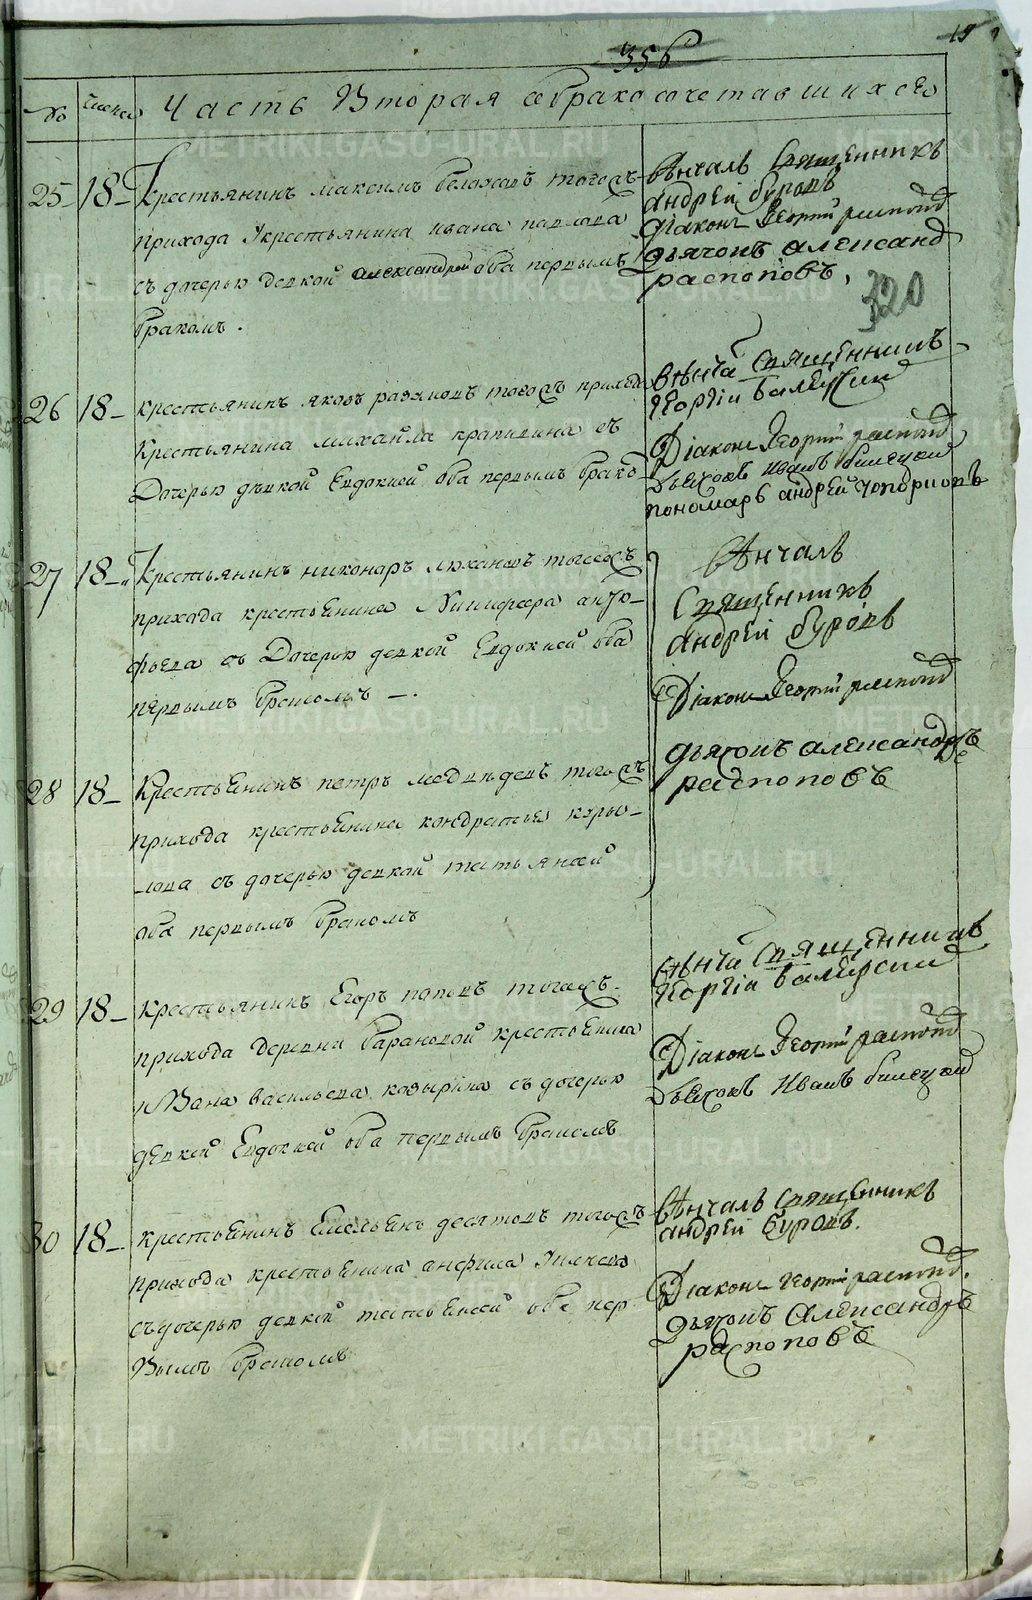 356
19
№ Число Часть Вторая обракосочетавшихся
25 18 Крестьянинъ максимъ тогожъ
прихода Укрестьянина ивана павлова
съ дочерью девкой александрой оба первымъ
бракомъ.
Венчалъ Священникъ
андрей буровъ
Діаконъ Георгий распоповъ
дьячокъ александ
распоповъ.
320
26 18 крестьянинъ яковъ тогожъ прихода
Крестьянина михайла крапивина съ
Дочерью дѣвкой Евдокией оба первымъ брако
венча Священникъ
Георгій
Діаконъ Георгий распоповъ
Дьячокъ Иванъ билецкий
пономарь андрей топорковъ
27 18 Крестьянинъ никонаръ тогожъ
прихода крестьенина Никифора анфо-
фьева съ Дочерью девкой Евдокией оба
первымъ бракомъ
Венчалъ
Священникъ
андрей буровъ
Діаконъ Георгий распоповъ
дьячокъ александръ
распоповъ
28 18 Крестьенинъ петръ медведевъ тогожъ
прихода крестьенина кондратья кирь-
лова съ дочерью девкой татьяной
оба первымъ бракомъ
29 18 крестьянинъ Егоръ поповъ тогожъ
прихода деревни барановой крестьенина
Ивана васильева козырина съ дочерью
девкой Евдокией оба первымъ бракомъ
венча Священникъ
Георгій
Діаконъ Георгий распоповъ
Дьячокъ Иванъ билецкий
30 18 крестьенинъ Емельенъ десятовъ тогожъ
прихода крестьенина анфима
съ дочерью девкой татьеной оба пер
вымъ бракомъ
Венчалъ Священникъ
андрей Буровъ.
Діаконъ георгий распоповъ.
дьячокъ Александръ
распоповъ
METRIKI.GASO-URAL.RU